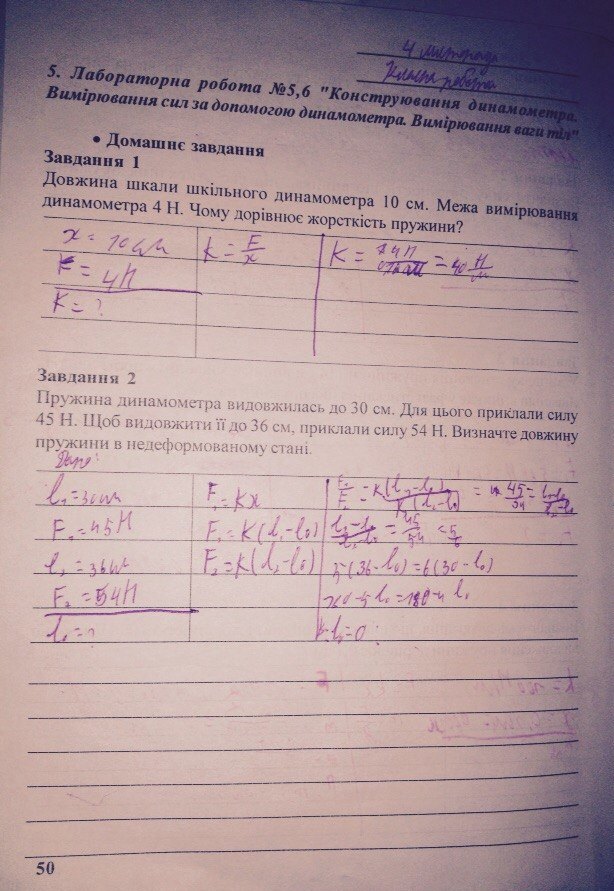 4 листопада
Класна робота
5. Лабораторна робота №5,6 "Конструювання динамометра.
Вимірювання сил за допомогою динамометра. Вимірювання ваги тіл"
• Домашнє завдання
Завдання 1
Довжина шкали шкільного динамометра 10 см. Межа вимірювання
динамометра 4 Н. Чому дорівнює жорсткість пружини?
x = 10 см
k = F/x
K =
= 40 Н/м
F = 4Н
K = ?
Завдання 2
Пружина динамометра видовжилась до 30 см. Для цього приклали силу
45 Н. Щоб видовжити її до 36 см, приклали силу 54 Н. Визначте довжину
пружини в недеформованому стані.
Дано:
l₁=30см
F₁=45Н
l₂=36см
F₂=54Н
l₀=?
F=Kx
F₁=K(l₁-l₀)
F₂=K(l₂-l₀)
5(36-l₀)=6(30-l₀)
l₀=0
50